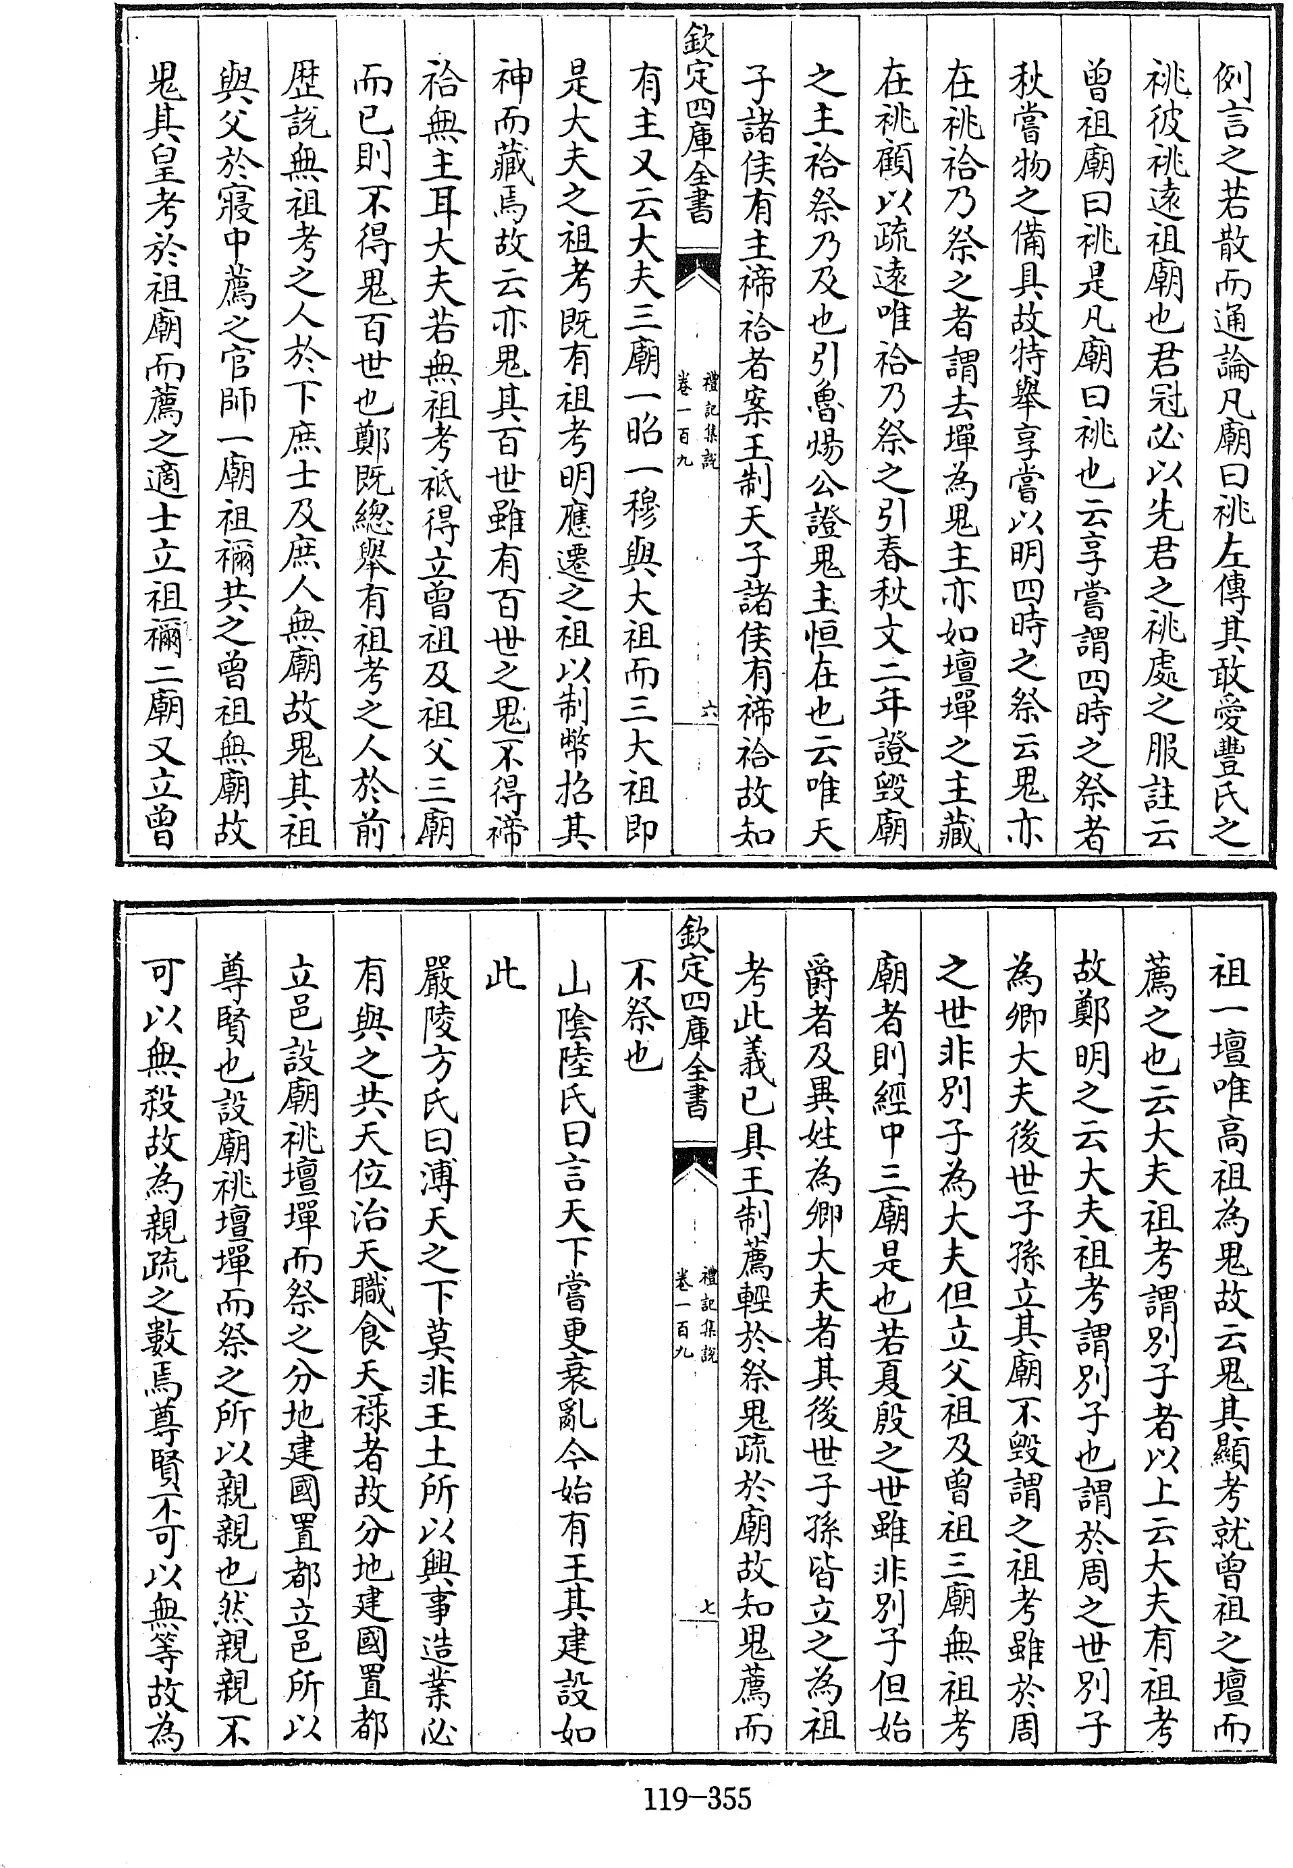 例言之若散而通論凡廟曰祧左傳其敢愛豐氏之
祧彼祧逺祖廟也君冠必以先君之祧處之服註云
曾祖廟曰祧是凡廟曰祧也云享嘗謂四時之祭者
秋嘗物之備具故特舉享嘗以明四時之祭云鬼亦
在祧祫乃祭之者謂去墠為鬼主亦如壇墠之主藏
在祧顧以疏逺唯祫乃祭之引春秋文二年證毀廟
之主祫祭乃及也引魯煬公證鬼主恒在也云唯天
子諸侯有主禘祫者案王制天子諸侯有禘祫故知
欽定四庫全書
禮記集說
卷一百九
六
有主又云大夫三廟一昭一穆與大祖而三大祖即
是大夫之祖考既有祖考明應遷之祖以制幣招其
神而藏焉故云亦鬼其百世雖有百世之鬼不得禘
祫無主耳大夫若無祖考祗得立曾祖及祖父三廟
而已則不得鬼百世也鄭既總舉有祖考之人於前
歴說無祖考之人於下庶士及庶人無廟故鬼其祖
與父於寢中薦之官師一廟祖禰共之曾祖無廟故
鬼其皇考於祖廟而薦之適士立祖禰二廟又立曾
祖一壇唯高祖為鬼故云鬼其顯考就曾祖之壇而
薦之也云大夫祖考謂別子者以上云大夫有祖考
故鄭明之云大夫祖考謂別子也謂於周之世別子
為卿大夫後世子孫立其廟不毀謂之祖考雖於周
之世非別子為大夫但立父祖及曾祖三廟無祖考
廟者則經中三廟是也若夏殷之世雖非別子但始
爵者及異姓為卿大夫者其後世子孫皆立之為祖
考此義已具王制薦輕於祭鬼疏於廟故知鬼薦而
欽定四庫全書
禮記集說
卷一百九
七
不祭也
山陰陸氏曰言天下嘗更衰亂今始有王其建設如
此
嚴陵方氏曰溥天之下莫非王土所以興事造業必
有與之共天位治天職食天祿者故分地建國置都
立邑設廟祧壇墠而祭之分地建國置都立邑所以
尊賢也設廟祧壇墠而祭之所以親親也然親親不
可以無殺故為親疏之數焉尊賢不可以無等故為
119-355